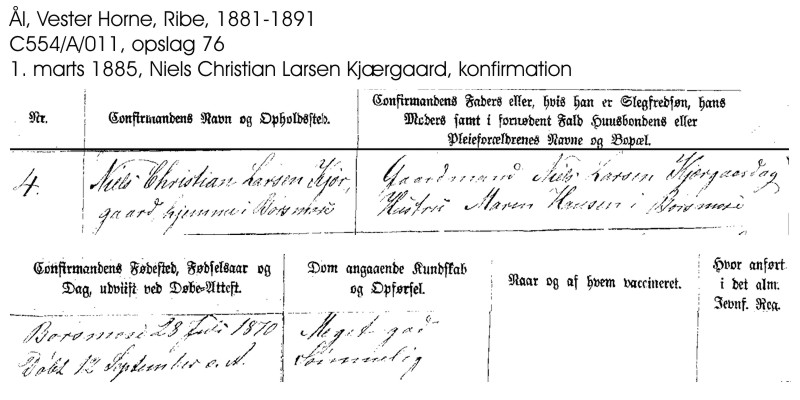 Ål, Vester Horne, Ribe, 1881-1891
C554/A/011, opslag 76
1. marts 1885, Niels Christian Larsen Kjærgaard, konfirmation
Nr.
Confirmandens Navn og Opholdssted.
Confirmandens Faders eller, hvis han er Slegfredsøn, hans
Moders samt i fornødent Fald Huusbondens eller
Pleieforældrenes Navne og Bopæl.
4.
Niels Christian Larsen Kjær,
gaard, hjemme i Borsmose
Gaardmand Niels Larsen Kjærgaard og
Hustru Maren Hansen i Borsmose
Confirmandens Fødested, Fødselsaar og
Dag, udviist ved Døbe-Attest.
Dom angaaende Kundskab
og Opførsel.
Naar og af hvem vaccineret.
Hvor anført
i det alm.
Jevnf. Reg.
Borsmose 28 Juli 1870
Døbt 12 September s. A.
Meget god
Sømmelig